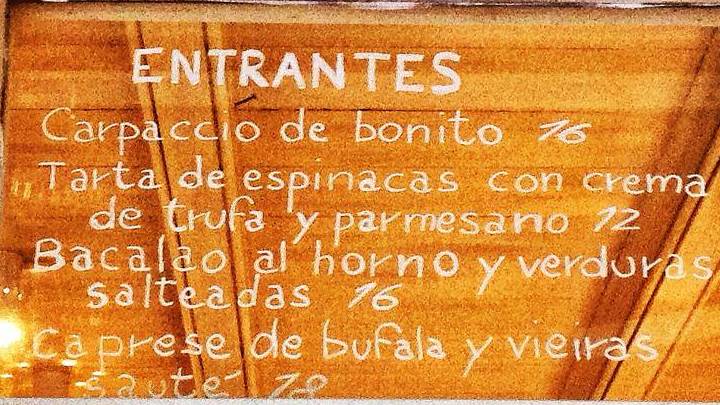 ENTRANTES
Carpaccio de bonito 16
Tarta de espinacas con crema
de trufa y parmesano 12
Bacalao al horno y verduras
salteadas 16
Caprese de bufala y vieiras
sauté 18